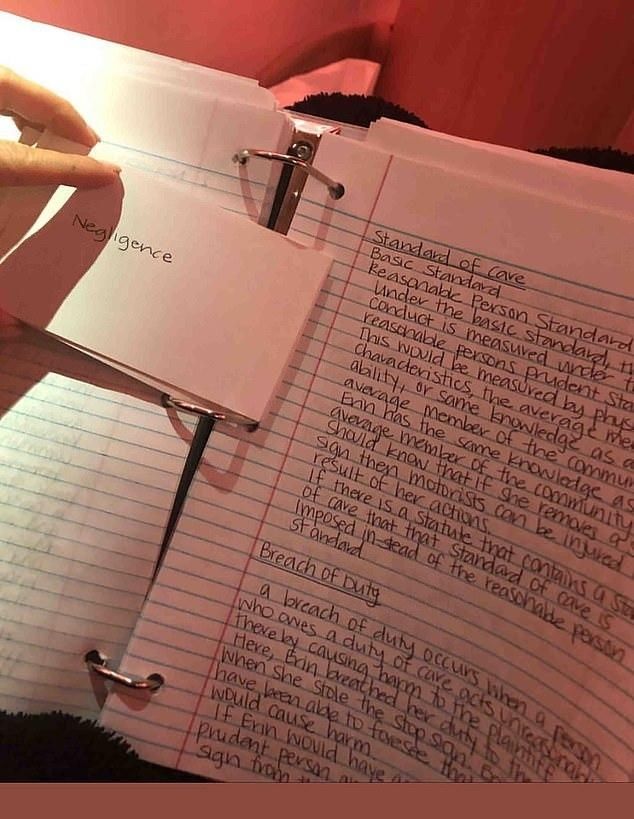 Negligence
Standard of care
Basic Standard
Reasonable Person Standard
Under the basic standard, th
conduct is measured under t
reasonable persons prudent sta
This would be measured by phys
characteristics, the average me
ability, or same knowledge as a
average member of the commun
Erin has the same knowledge as
average member of the community
should know that if she removes a
sign then motorists can be injured
result of her actions.
If there is a statute that contains a sta
of care that that standard of care is
imposed in-stead of the reasonable person
standard
Breach of Duty
a breach of duty occurs when a person
who owes a duty of care acts unreasonably
thereby causing harm to the plaintiff
Here, Erin breached her duty to the
when she stole the stop sign.
have been able to foresee that
would cause harm
If Erin would have a
prudent person
sign from